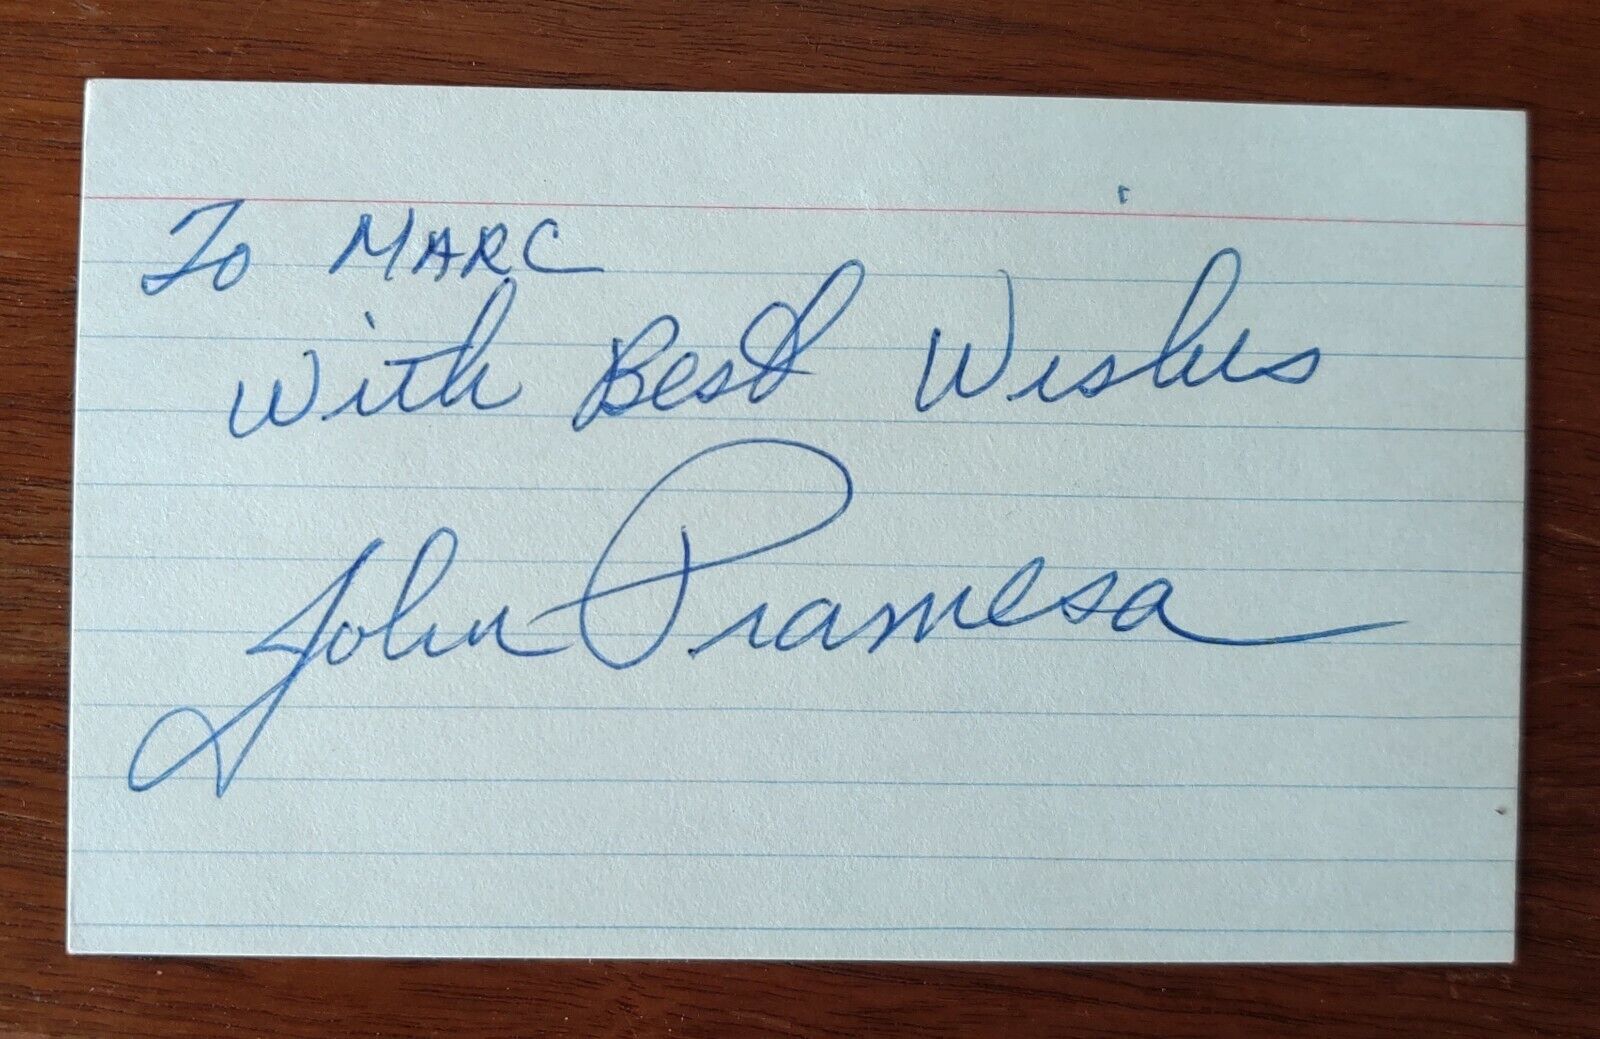 To MARC
With Best Wishes
John Pramesa